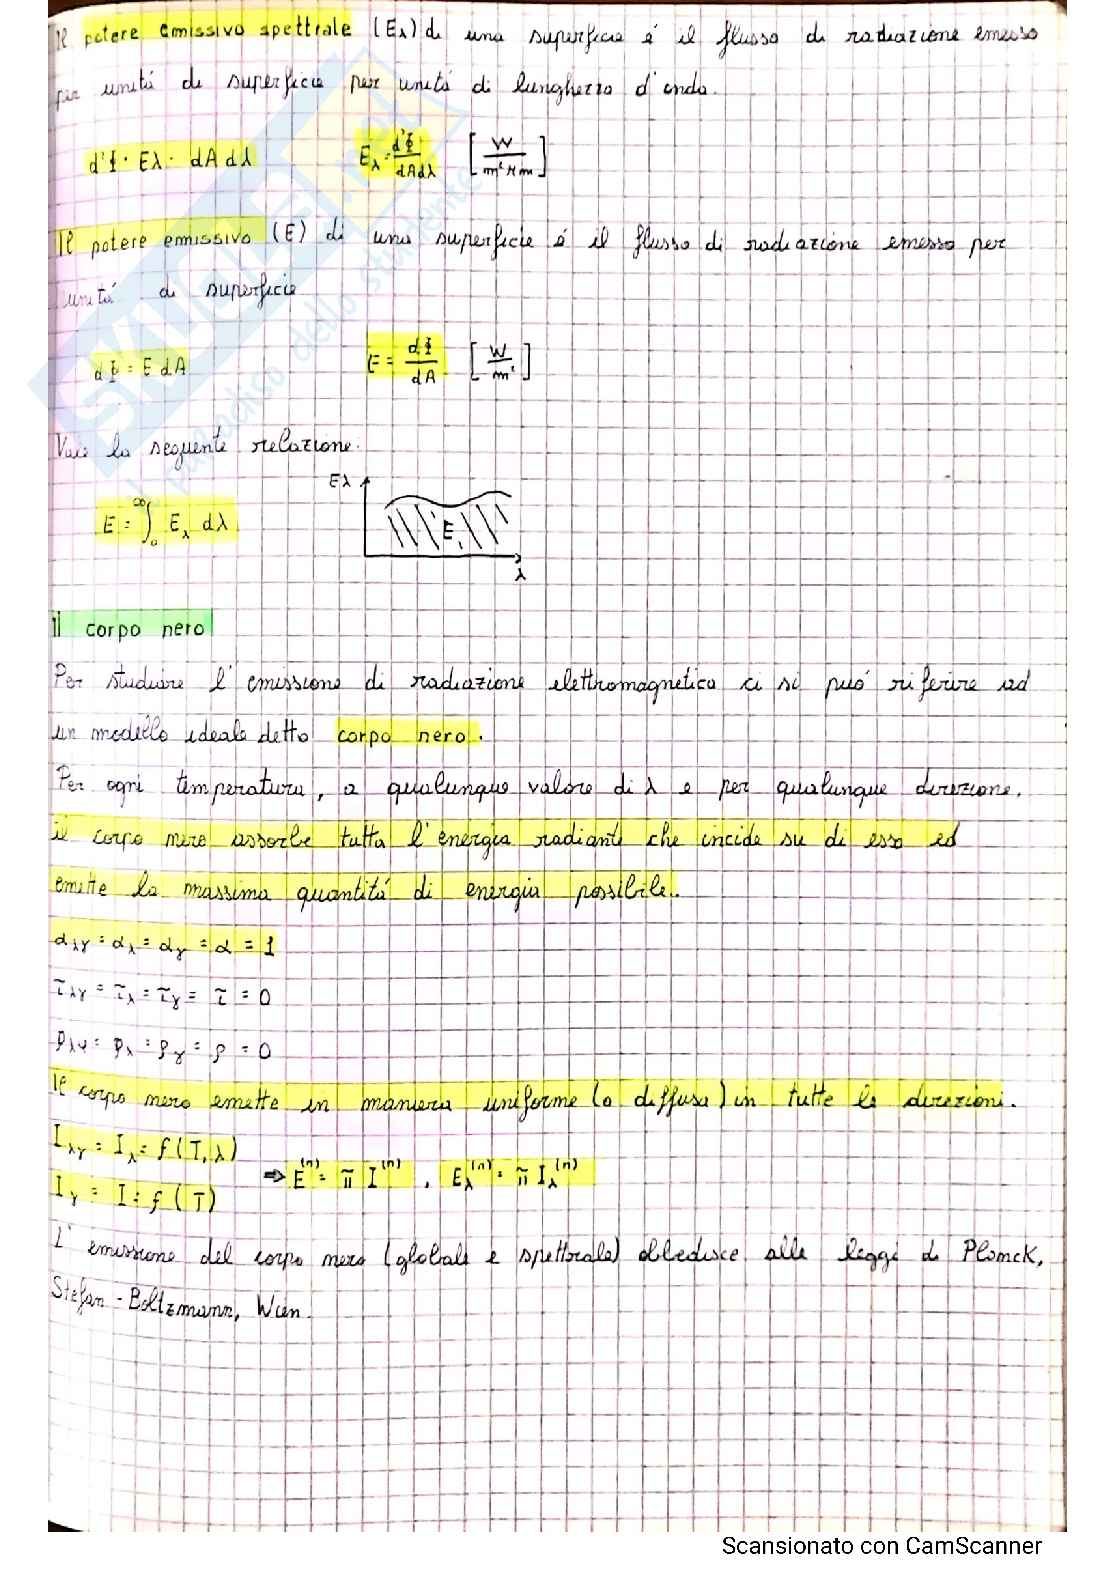 Il potere emissivo spettrale (Eλ) di una superficie é il flusso di radiazione emesso
per unitá di superficie per unitá di lunghezza d'onda.
d²Φ = Eλ · dA dλ Eλ = d²Φ/dAdλ [W/m² μm]
Il potere emissivo (E) di una superficie é il flusso di radiazione emesso per
unitá di superficie
dΦ = E dA E = dΦ/dA [W/m²]
Vale la seguente relazione:
Eλ
E = ∫₀^∞ Eλ dλ
E
λ
Il corpo nero
Per studiare l'emissione di radiazione elettromagnetica ci si puó riferire ad
un modello ideale detto corpo nero.
Per ogni temperatura, a qualunque valore di λ e per qualunque direzione,
il corpo nero assorbe tutta l'energia radiante che incide su di esso ed
emette la massima quantitá di energia possibile.
αλγ = αλ = αγ = α = 1
τλγ = τλ = τγ = τ = 0
ρλγ = ρλ = ργ = ρ = 0
Il corpo nero emette in maniera uniforme (o diffusa) in tutte le direzioni.
Iλγ = Iλ = f(T,λ)
⇒ E⁽ⁿ⁾ = π I⁽ⁿ⁾, Eλ⁽ⁿ⁾ = π Iλ⁽ⁿ⁾
Iγ = I = f(T)
L'emissione del corpo nero (globale e spettrale) obbedisce alle leggi di Planck,
Stefan-Boltzmann, Wien.
SKUOLA.net
il paradiso dello studente
Scansionato con CamScanner